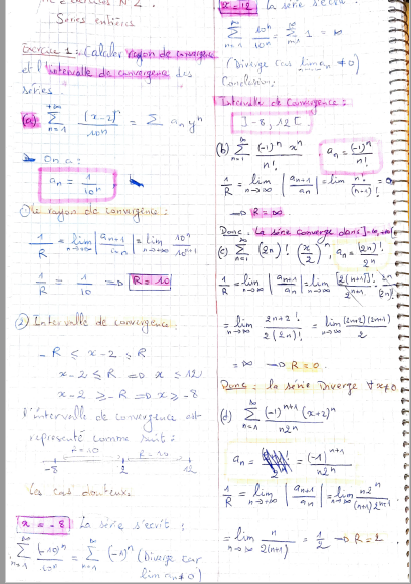 Séries entières
Exercice 1 : Calculer rayon de convergence
et l'intervalle de convergence des
séries.
(a) \sum_{n=1}^{+\infty} \frac{(x-2)^n}{10^n} = \sum a_n y^n
On a :
a_n = \frac{1}{10^n}
① le rayon de convergence :
\frac{1}{R} = \lim_{n→∞} |\frac{a_{n+1}}{a_n}| = \lim_{n→∞} \frac{10^n}{10^{n+1}}
\frac{1}{R} = \frac{1}{10} ⇒ R = 10
② Intervalle de convergence :
-R ≤ x-2 ≤ R
x-2 ≤ R ⇒ x ≤ 12
x-2 ≥ -R ⇒ x ≥ -8
l'intervalle de convergence est
représenté comme suit :
R=10 R=10
-8 2 12
les cas douteux.
x = -8 : la série s'écrit :
\sum_{n=1}^{∞} \frac{(-10)^n}{10^n} = \sum_{n=1}^{∞} (-1)^n (Diverge car
lim a_n ≠ 0)
x = 12 la série s'écrit :
\sum_{n=1}^{∞} \frac{10^n}{10^n} = \sum_{n=1}^{∞} 1 = ∞
(Diverge car lim a_n ≠ 0)
Conclusion :
Intervalle de Convergence :
]-8, 12[
(b) \sum_{n=1}^{∞} \frac{(-1)^n x^n}{n!} a_n = \frac{(-1)^n}{n!}
\frac{1}{R} = \lim_{n→∞} |\frac{a_{n+1}}{a_n}| = \lim \frac{n!}{(n+1)!} = 0
→ R = ∞
Donc : la série converge dans ]-∞, +∞[
(c) \sum_{n=1}^{∞} (2n)! (\frac{x}{2})^n, a_n = \frac{(2n)!}{2^n}
\frac{1}{R} = \lim_{n→∞} |\frac{a_{n+1}}{a_n}| = \lim_{n→∞} \frac{[2(n+1)]!}{2^{n+1}} \cdot \frac{2^n}{(2n)!}
= \lim_{n→∞} \frac{2n+2!}{2(2n)!} = \lim_{n→∞} \frac{(2n+2)(2n+1)}{2}
= ∞ → R = 0.
Donc : la série Diverge ∀x≠0
(d) \sum_{n=1}^{∞} \frac{(-1)^{n+1} (x+2)^n}{n2^n}
a_n = \frac{(-1)^{n+1}}{n2^n}
\frac{1}{R} = \lim_{n→+∞} |\frac{a_{n+1}}{a_n}| = \lim_{n→∞} \frac{n2^n}{(n+1)2^{n+1}}
= \lim_{n→∞} \frac{n}{2(n+1)} = \frac{1}{2} → R = 2